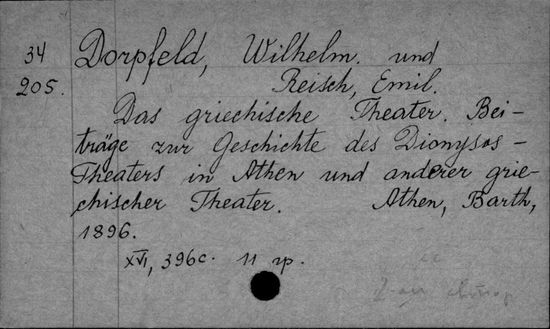 34
205.
Dorpfeld, Wilhelm. und
Reisch, Emil.
Das griechische Theater. Bei-
träge zur Geschichte des Dionysos-
Theaters in Athen und anderer grie-
chischer Theater. Athen, Barth,
1896.
XVI, 396c. 11 ър.